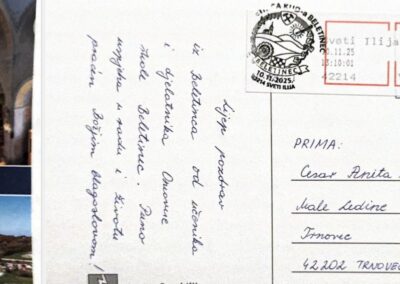 BELETINEC
BELETINEC
10.11.2025.
42214 SVETI ILIJA
Sveti Ilija
10.11.25
13:10:01
42214
Lijep pozdrav
iz Beletinca od učenika
i djelatnika Osnovne
škole Beletinec. Puno
uspjeha u radu i životu
praćen Božjim blagoslovom!
PRIMA:
Cesar Anita
Male Ledine
Trnovec
42202 TRNOVEC